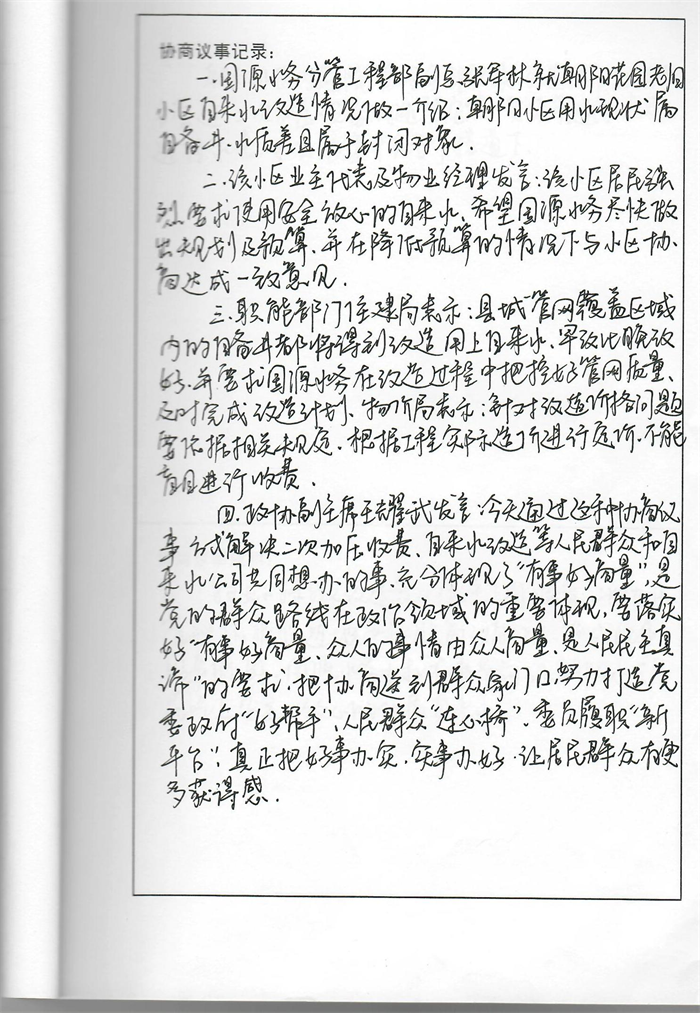 协商议事记录：
一.国源水务分管工程部副总张军林就朝阳花园老旧
小区自来水改造情况做一介绍：朝阳小区用水现状属
自备井.水质差且属于封闭对象.
二.该小区业主代表及物业经理发言：该小区居民强
烈要求使用安全放心的自来水.希望国源水务尽快做
出规划及预算、并在降低预算的情况下与小区协.
商达成一致意见.
三.职能部门住建局表示：县城管网覆盖区域
内的自备井都将得到改造用上自来水.早改比晚改
好.并要求国源水务在改造过程中把控好管网质量、
及时完成改造计划、物价局表示：针对改造价格问题
要依据相关规定.根据工程实际造价进行定价.不能
盲目进行收费.
四.政协副主席王耀武发言：今天通过这种协商议
事方式解决二次加压收费、自来水改造等人民群众和自
来水公司共同想办的事.充分体现了“有事好商量”，是
党的群众路线在政治领域的重要体现，要落实
好“有事好商量、众人的事情由众人商量，是人民民主真
谛”的要求.把协商送到群众家门口.努力打造党
委政府“好帮手”、人民群众“连心桥”、委员履职“新
平台”，真正把好事办实.实事办好.让居民群众有更
多获得感.